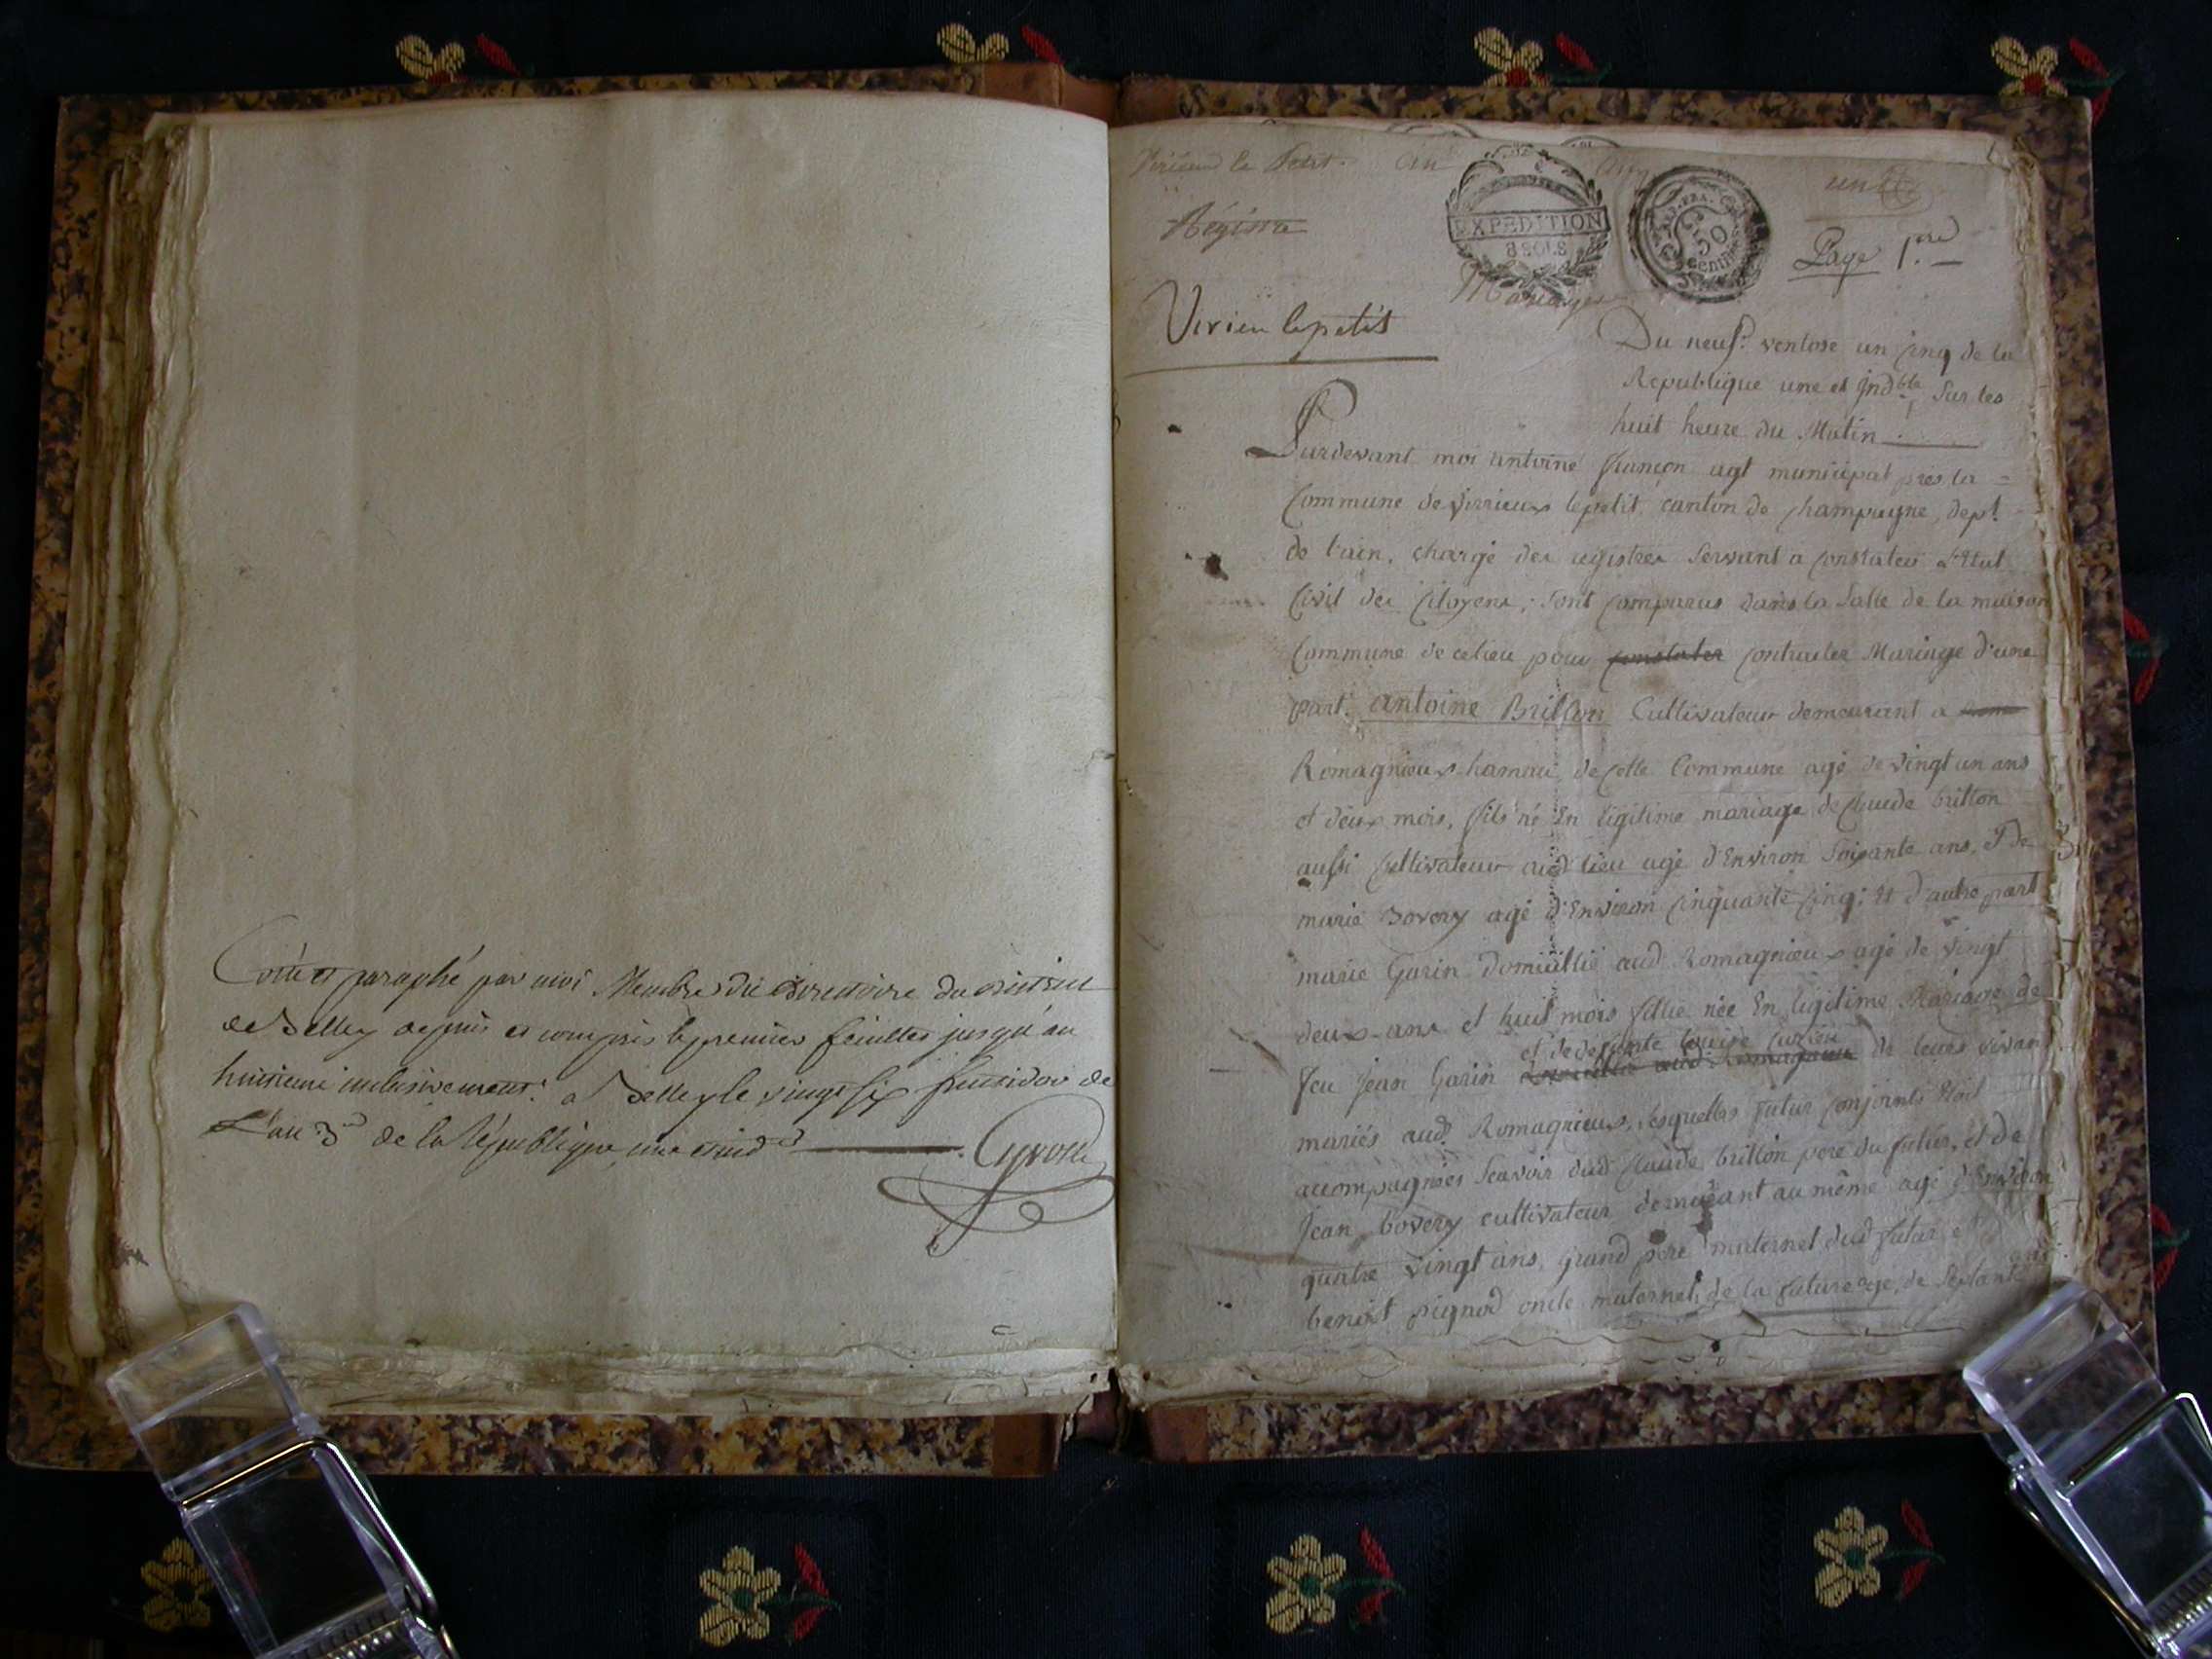 Cotté et paraphé par moi Membre du directoire du district
de Belley depuis et compris le premier feuillet jusqu'au
huitieme inclusivement. a Belley le vingt six fructidor de
L'an 3 de la République une et ind
Virieu le Petit. an
un
Régistre
EXPEDITION
8 SOLS
50
Centimes
Page 1.ere
Mariages
Virieu lepetit
Du neuf. ventose an cinq de la
Republique une et Ind.ble Sur les
huit heure du Matin
Pardevant moi antoine françon agt municipal pres la
Commune de virrieux lepetit, canton de Champagne, dept.
de l'ain, chargé des registres Servant a Constater L'Etat
Civil des Citoyens; Sont Comparus dans la Salle de la maison
Commune de celieu pour constater contracter Mariage d'une
part. antoine Brillon Cultivateur demeurant a
Romagnieux hameau de cette Commune agé de vingt un ans
et deux mois, fils né En légitime mariage de Claude brillon
aussi Cultivateur aud lieu agé d'Environ Soixante ans, et de
marie Bovery agé d'Environ Cinquante Cinq; Et d'autre part
marie Garin Domicillié aud Romagnieux agé de vingt
deux ans et huit mois fillie née En légitime Mariage de
et de defunte
feu Jean Garin de leurs vivant
mariés aud Romagnieux, lesquelles futur Conjoints Etoit
accompagnées Scavoir dud Claude brillon pere du futur, et de
Jean bovery cultivateur demeurant au même agé d'Environ
quatre vingt ans, grand pere maternel dud futur, et
benoit pignod oncle maternel de la future agé, de Septante